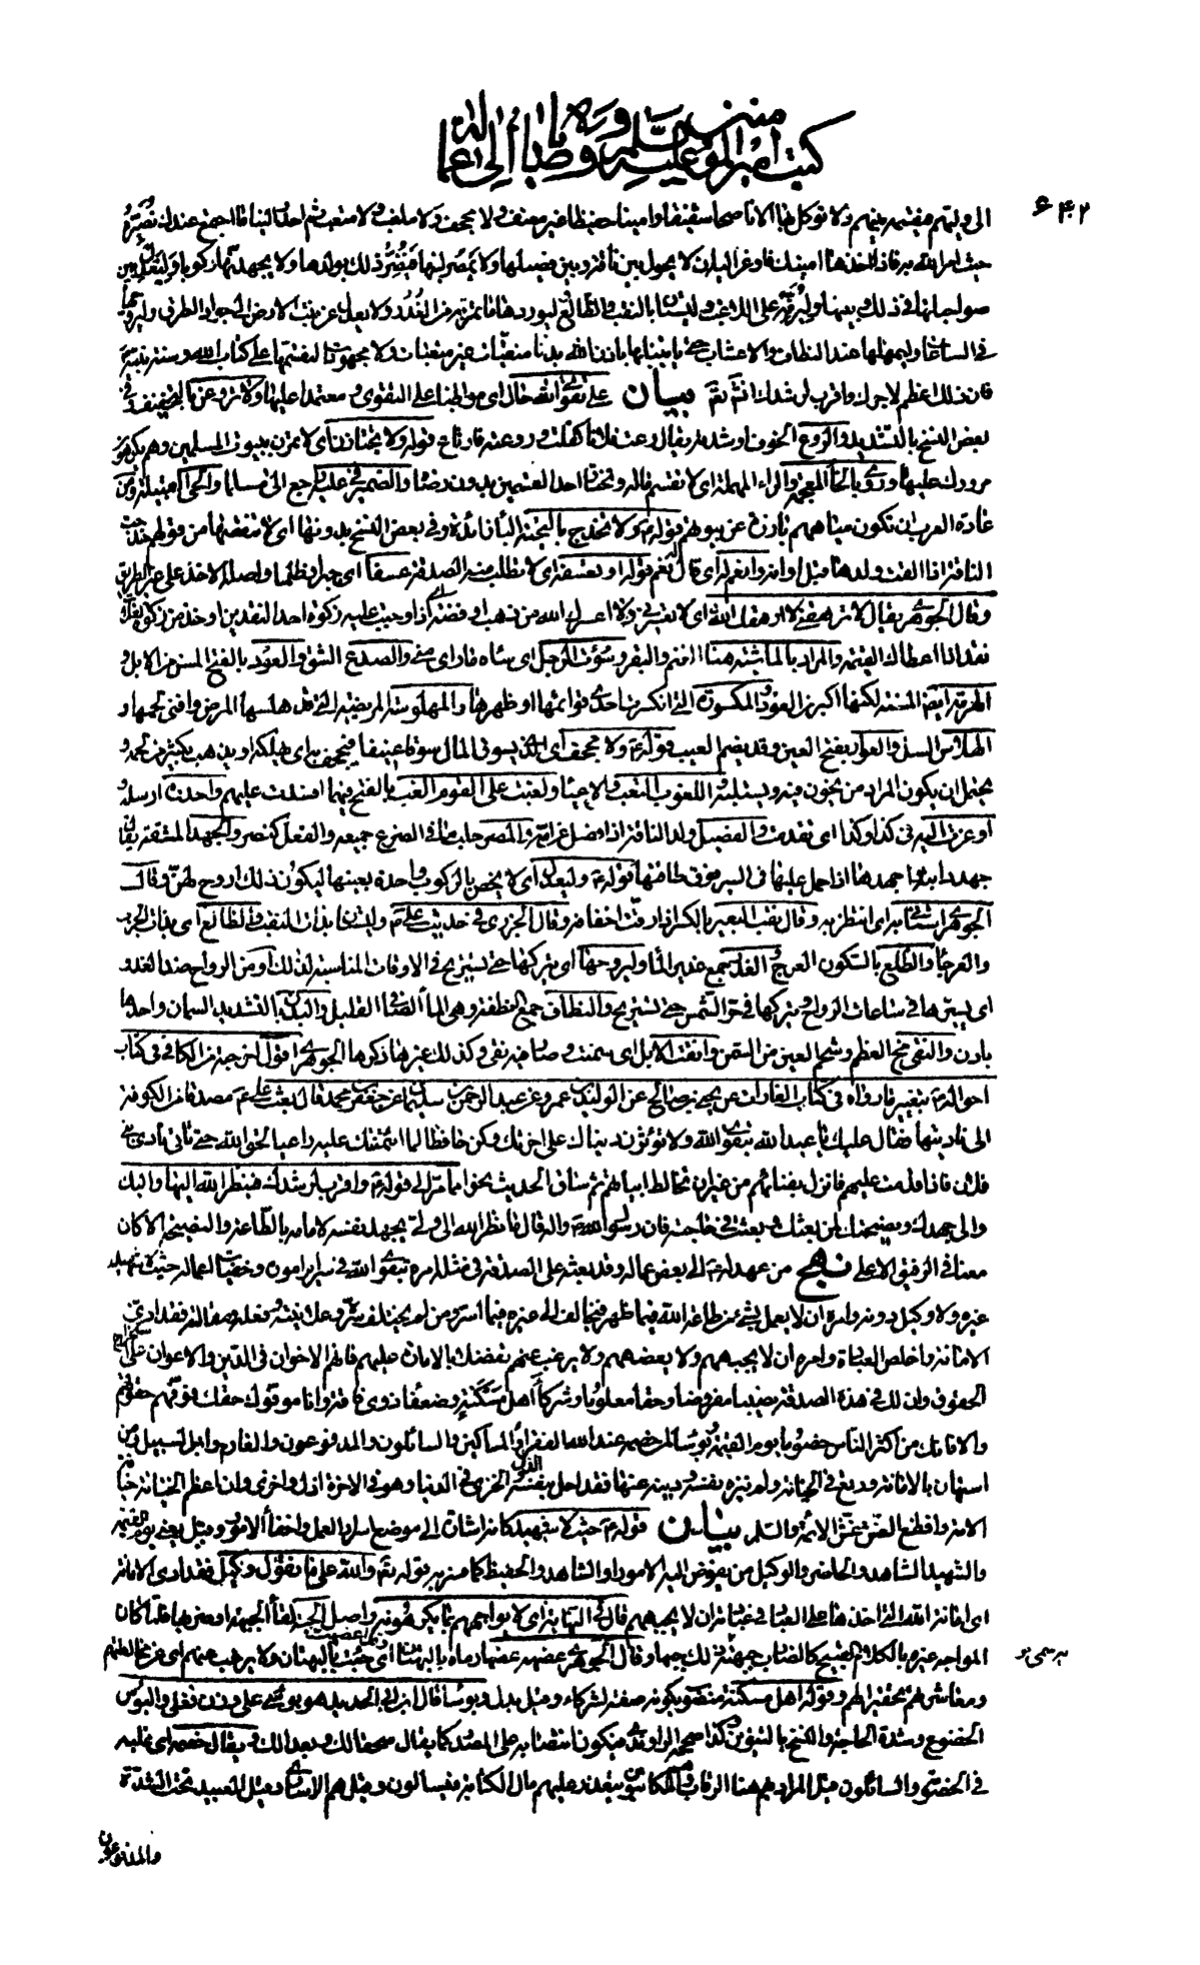 كتب امير المؤمنين عليه السلام ووصاياه الى عماله
٦٤٢
الى وليهم فيقسمه بينهم ولا توكل بها الا ناصحا شفيقا وامينا حفيظا غير معنف ولا مجحف ولا ملغب ولا متعب ثم احدر الينا ما اجتمع عندك نصيره
حيث امر الله به فاذا اخذها امينك فاوعز اليه ان لا يحول بين ناقة وبين فصيلها ولا يمصر لبنها فيضر ذلك بولدها ولا يجهدنها ركوبا وليعدل بين
صواحباتها في ذلك وبينها وليرفه على اللاغب وليستأن بالنقب والظالع وليوردها ما تمر به من الغدر ولا يعدل بها عن نبت الارض الى جواد الطرق وليروحها
في الساعات وليمهلها عند النطاف والاعشاب حتى يأتينا بها باذن الله بدنا منقيات غير متعبات ولا مجهودات لنقسمها على كتاب الله وسنة نبيه
فان ذلك اعظم لاجرك واقرب لرشدك انشاء الله تم بيان على تقوى الله حال اى مواظبا على التقوى ومعتمدا عليها ولا تروعن بالتخفيف وفي
بعض النسخ بالتشديد والروع الخوف او شدته يقال رعت فلانا وروعته فارتاع قوله ولا تجتازن اى لا تمرن ببيوت المسلمين وهم يكرهون
مرورك عليها وروى بالخاء المعجمة والراء المهملة اى لا تقسم ماله وتختار احد القسمين بدون رضاه والضمير في عليه راجع الى مسلما والحى القبيلة ومن
عادة العرب ان تكون مياههم بارزة عن بيوتهم قوله ع ولا تخدج بالتحية الباء زائدة وفي بعض النسخ بدونها اى لا تنقصها من قولهم خدجت
الناقة اذا القت ولدها قبل اوانه وانعم له اى قال نعم قوله او تعسفه اى لا تطلب منه الصدقة عسفا اى جبرا وظلما واصله الاخذ على غير الطريق
وقال الجوهرى يقال لا ترهقنى لا ارهقك الله اى لا تعسرنى لا اعسرك الله من ذهب او فضة
نقدا اذا اعطاك القيمة والمراد بالماشية هنا الغنم والبقر وسؤت الرجل اى ساءه ما راى منى والصدع الشق والعود بالفتح المسن من الابل و
الهرمة ايضا المسنة لكنها اكبر من العود والمكسورة التى انكسرت احدى قوائمها او ظهرها والمهلوسة المريضة التى قد هلسها المرض وافنى لحمها و
الهلاس السل والعوار بفتح العين وقد يضم العيب قوله ع ولا مجحف اى الذى يسوق المال سوقا عنيفا فيجحف به اى يهلكه او يذهب بكثير من لحمه و
يحتمل ان يكون المراد من يخون فيه ويستلبه واللغوب التعب والاعياء ولغبت على القوم الغب بالفتح فيهما افسدت عليهم واحدره ارسله و
اوعزت اليه في كذا وكذا اى تقدمت والفصيل ولد الناقة اذا فصل عن امه والمصر حلب ما في الضرع جميعه والفعل كنصر والجهد المشقة يقال
جهد دابته واجهدها اذا حمل عليها في السير فوق طاقتها قوله ع وليعدل اى لا يخص بالركوب واحدة بعينها ليكون ذلك اروح لهن وقال
الجوهرى استأنى به اى انتظر به وقال نقب البعير بالكسر اذا رقت اخفافه وقال الجزرى في حديث على ع وليستأن بذات النقب والظالع اى بذات الجرب
والعرجاء والظلع بالسكون العرج والغدر جمع غدير الماء وليروحها اى يتركها حتى تستريح في الاوقات المناسبة لذلك او من الرواح ضد الغدو
اى يسيرها في ساعات الرواح ويتركها في حر الشمس حتى تستريح والنطاف جمع النطفة وهى الماء الصافى القليل والبدن بالتشديد السمان واحدها
بادن والنقى مخ العظم وشحم العين من السمن وانقت الابل اى سمنت وصار فيها نقى وكذلك غيرها ذكرها الجوهرى اقول اخرجته من الكافى في كتاب
احواله ع بتغيير ما ورواه في كتاب الغارات عن يحيى بن صالح عن الوليد بن عمرو عن عبد الرحمن بن سليمان عن جعفر بن محمد قال بعث على ع مصدقا من الكوفة
الى باديتها فقال عليك يا عبد الله بتقوى الله ولا تؤثرن دنياك على اخرتك وكن حافظا لما ائتمنتك عليه راعيا لحق الله حتى تأتى نادى بنى
فلان فاذا قدمت عليهم فانزل بفنائهم من غير ان تخالط ابياتهم ثم ساق الحديث نحوا مما مر الى قوله ع واقرب لرشدك فينظر الله اليها واليك
والى جهدك ونصيحتك لمن بعثك وبعثت في حاجته فان رسول الله ص قال ما نظر الله الى ولى يجهد نفسه لامامه بالطاعة والنصيحة الا كان
معنا في الرفيق الاعلى نهج من عهد له ع الى بعض عماله وقد بعثه على الصدقة امره بتقوى الله في سراير اموره وخفيات اعماله حيث لا شهيد
غيره ولا وكيل دونه وامره ان لا يعمل بشىء من طاعة الله فيما ظهر فيخالف الى غيره فيما اسر ومن لم يختلف سره وعلانيته وفعله ومقالته فقد ادى
الامانة واخلص العبادة وامره ان لا يجبههم ولا يعضههم ولا يرغب عنهم تفضلا بالامارة عليهم فانهم الاخوان في الدين والاعوان على استخراج
الحقوق وان لك في هذه الصدقة نصيبا مفروضا وحقا معلوما وشركاء اهل مسكنة وضعفاء ذوى فاقة وانا موفوك حقك فوفهم حقوقهم
والا فانك من اكثر الناس خصوما يوم القيمة وبؤسا لمن خصمه عند الله الفقراء والمساكين والسائلون والمدفوعون والغارم وابن السبيل ومن
استهان بالامانة ورتع في الخيانة ولم ينزه نفسه ودينه عنها فقد احل بنفسه الذل والخزى في الدنيا وهو في الاخرة اذل واخزى وان اعظم الخيانة خيانة
الامة وافظع الغش غش الائمة والسلم بيان قوله ع حيث لا شهيد كانه اشارة الى موضع اسرار العمل واخفاء الامور وقيل يعنى يوم القيمة
والشهيد الشاهد والحاضر والوكيل من يفوض اليه الامور او الشاهد والحفيظ كما فسر به قوله تع والله على ما نقول وكيل فقد ادى الامانة
اى امانة الله التى اخذها على العباد في عبادته ان لا يجبههم قال في النهاية اى لا يواجههم بما يكرهونه واصل الجبه لقاء الجبهة او ضربها فلما كان
المواجه غيره بالكلام القبيح كالضارب جبهته سمى ذلك جبها وقال الجوهرى عضهه عضها رماه بالبهتان وقد اعضهت اى جئت بالبهتان ولا يرغب عنهم اى عن مخالطتهم
ومعاشرتهم تحقيرا لهم وقوله اهل مسكنة منصوب بكونه صفة لشركاء وقيل بدل وبؤسا قال ابن ابى الحديد هو بؤسى على وزن فعلى والبؤس
الخضوع وشدة الحاجة والنسخ بالتنوين كذا صححه الراوندى فيكون انتصابه على المصدر كما يقال سحقا لك وبعدا لك يقال خصمه اى غلبه
في الخصومة والسائلون قيل المراد بهم هنا الرقاب وهم المكاتبون يتعذر عليهم مال الكتابة فيسألون وقيل هم الاسارى وقيل العبيد تحت الشدة
والمدفوعون